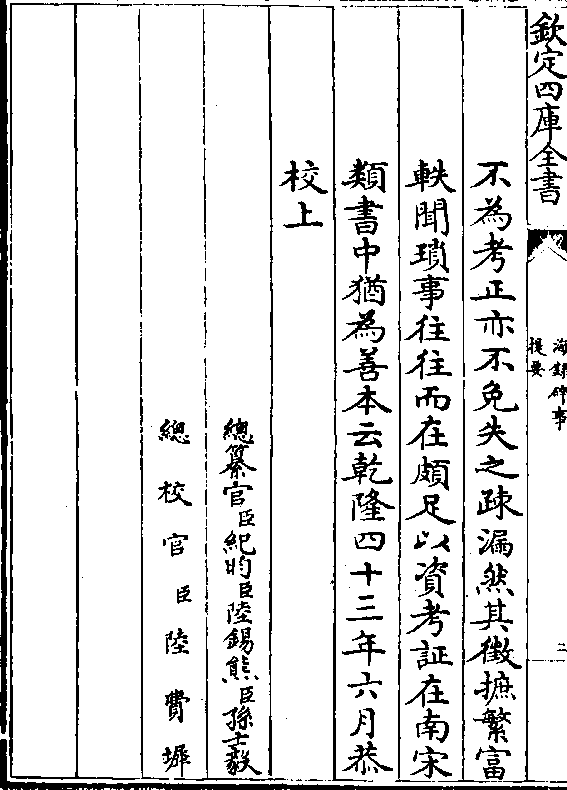 欽定四庫全書
海錄碎事
提要
二
不為考正亦不免失之疎漏然其徵摭繁富
軼聞瑣事往往而在頗足以資考証在南宋
類書中猶為善本云乾隆四十三年六月恭
校上
總纂官臣紀昀臣陸錫熊臣孫士毅
總校官臣陸費墀